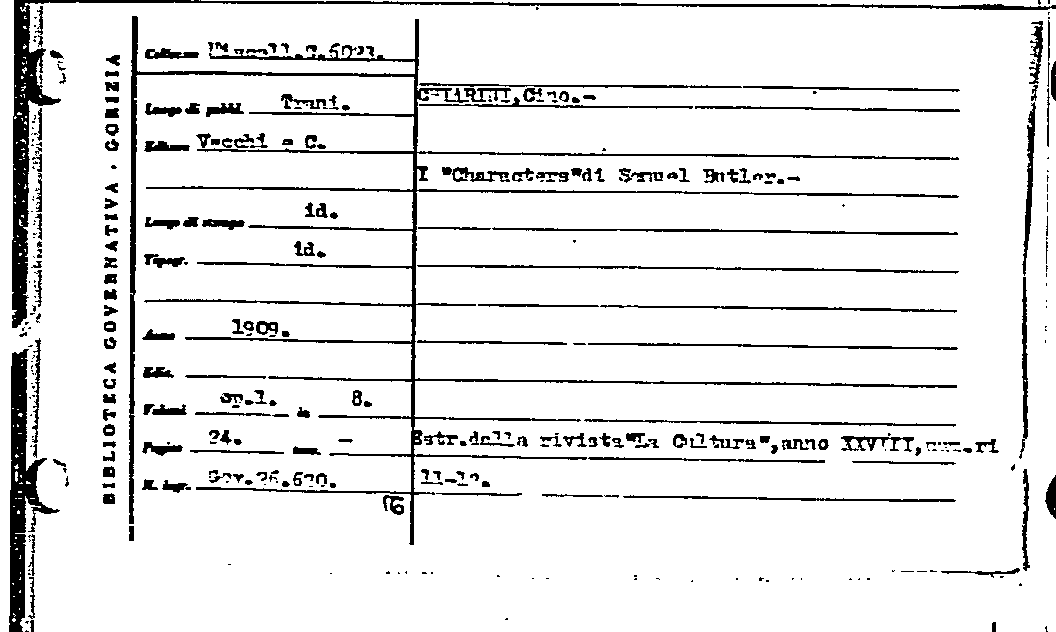 BIBLIOTECA GOVERNATIVA · GORIZIA
Collocaz. Miscell.
Luogo di pubbl. Trani.
CHIARINI,Cino.-
Editore Vecchi e C.
I "Characters"di Samuel Butler.-
Luogo di stampa id.
Tipogr. id.
Anno 1909.
Ediz.
Volumi op.1. in 8.
Pagine 24. -
Estr.della rivista"La Cultura",anno XXVIII,num.ri
N. ingr.
11-12.